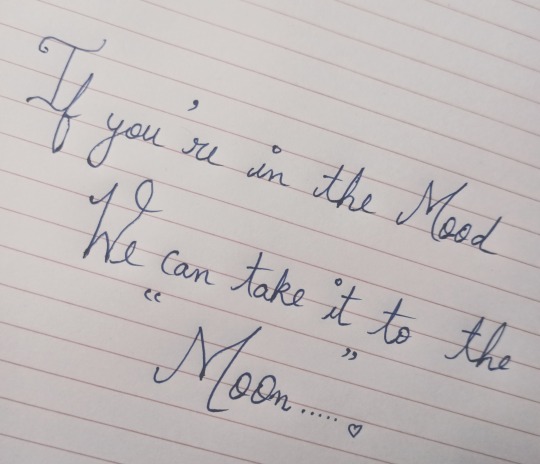 If you're in the Mood
We can take it to the
“Moon”.....♡